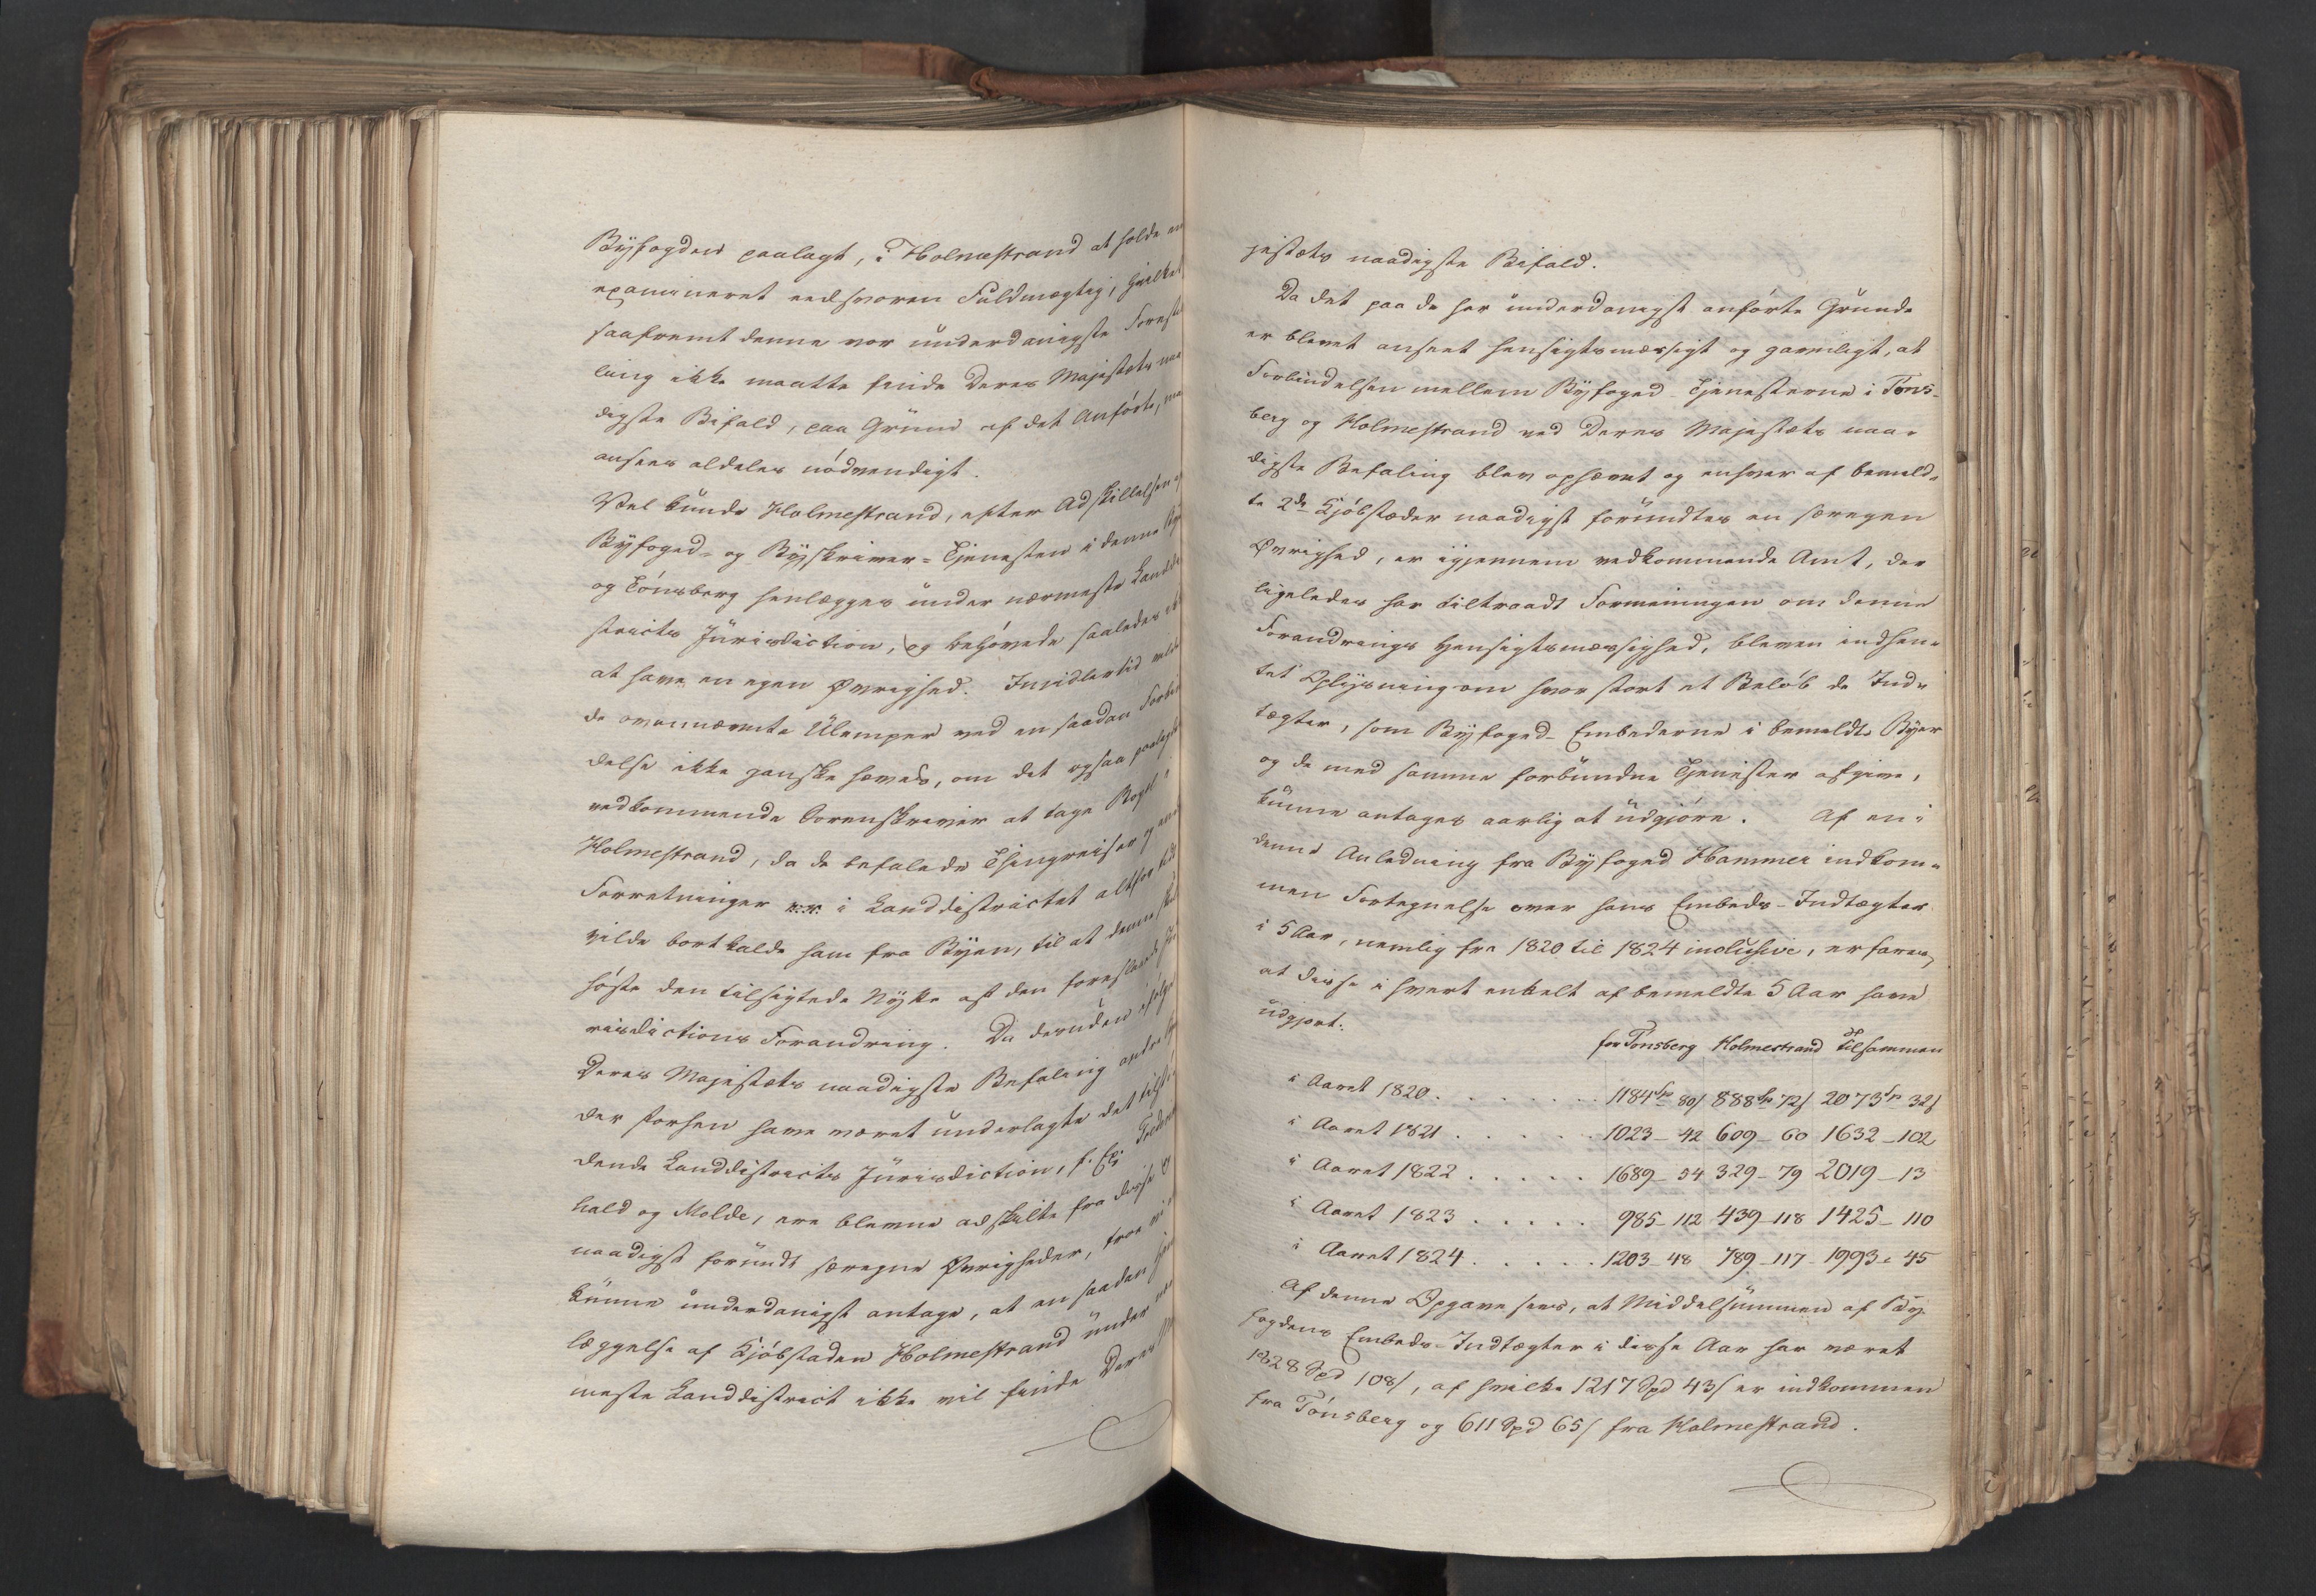 Byfogden paalagt, i Holmestrand at holde en
examineret eedsvoren Fuldmægtig, hvilket
saafremt denne vor underdanigste Forestil
ling ikke maatte finde Deres Majestæts naa
digste Bifald, paa Grund af det Anførte, maa
ansees aldeles nødvendigt.
Vel kunde Holmestrand, efter Adskillelsen af
Byfoged- og Byskriver-Tjenesten i denne By
og Tönsberg henlægges under nærmeste Landdi
stricts Jurisdiction, og behøvede saaledes ikke
at have en egen Øvrighed. Imidlertid vilde
de ovennævnte Ulemper ved en saadan Forbin
delse ikke ganske hæves, om det ogsaa paalagdes
vedkommende Sorenskriver at tage Bopæl i
Holmestrand, da de befalede Thingreiser og andre
Forretninger i Landdistrictet altfor tidt
vilde bortkalde ham fra Byen, til at denne skulde
høste den tilsigtede Nytte af den foreslaaede Ju
risdictions Forandring. Da desuden ifølge
Deres Majestæts naadigste Befaling andre Stæ
der forhen have været underlagte det tilstø
dende Landdistricts Jurisdiction, f. Ex. Frederiks
hald og Molde, ere blevne adskilte fra disse og
naadigst forundt særegne Øvrigheder, troe vi
kunne underdanigst antage, at en saadan Hen
læggelse af Kjøbstaden Holmestrand under nær
meste Landdistrict ikke vil finde Deres Ma
jestæts naadigste Bifald.
Da det paa de her underdanigst anførte Grunde
er blevet anseet hensigtsmæssigt og gavnligt, at
Forbindelsen mellem Byfoged-Tjenesterne i Tøns-
berg og Holmestrand ved Deres Majestæts naa-
digste Befaling blev ophævet og enhver af bemeld-
te 2de Kjøbstæder naadigst forundtes en særegen
Øvrighed, er igjennem vedkommende Amt, der
ligeledes har tiltraadt Formeningen om denne
Forandrings Hensigtsmæssighed, bleven indhen-
tet Oplysning om hvor stort et Beløb de Ind-
tægter, som Byfoged-Embederne i bemeldte Byer
og de med samme forbundne Tjenester afgive,
kunne antages aarlig at udgjøre. Af en i
denne Anledning fra Byfoged Hammer indkom-
men Fortegnelse over hans Embeds-Indtægter
i 5 Aar, nemlig fra 1820 til 1824 inclusive, erfares,
at disse i hvert enkelt af bemeldte 5 Aar have
udgjort:
for Tonsberg Holmestrand Tilsammen
i Aaret 1820. . . . . . . 1184 Sp 80 ß 888 Sp 72 ß 2073 Sp 32 ß
i Aaret 1821 . . . . . 1023 - 42 609 - 60 1632 - 102
i Aaret 1822 . . . . . 1689 - 54 329 - 79 2019 - 13
i Aaret 1823 . . . . . 985 - 112 439 - 118 1425 - 110
i Aaret 1824 . . . . . 1203 - 48 789 - 117 - 1993 - 45
Af denne Opgave sees, at Middelsummen af By-
fogdens Embeds-Indtægter i disse Aar har været
1828 Spd 108 ß, af hvilke 1217 Spd 43 ß er indkommen
fra Tönsberg og 611 Spd 65 ß fra Holmestrand.